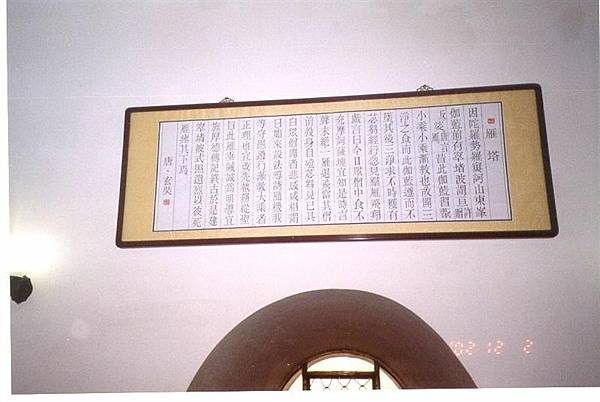 雁塔
因陀羅勢羅窶訶山東峯
伽藍前有窣堵波謂亘
昔此伽藍習翫
小乘小乘漸教也故開三
淨之食而此伽藍遵而不
墜其後三淨求不時獲有
苾芻經行忽見羣雁飛翔
戲言曰今日眾僧中食不
充摩訶薩埵宜知是時言
聲未絕一雁退飛當其僧
前投身自殞苾芻見已具
白眾僧聞者悲感咸相謂
曰如來設法導誘隨機我
等守愚遵行漸教大乘者
正理也宜改先執務從聖
旨此雁垂誡誠為明導宜
旌厚德傳記終古於是建
窣堵波式昭遺烈以彼死
雁瘞其下焉
唐·玄奘
'02 12 2